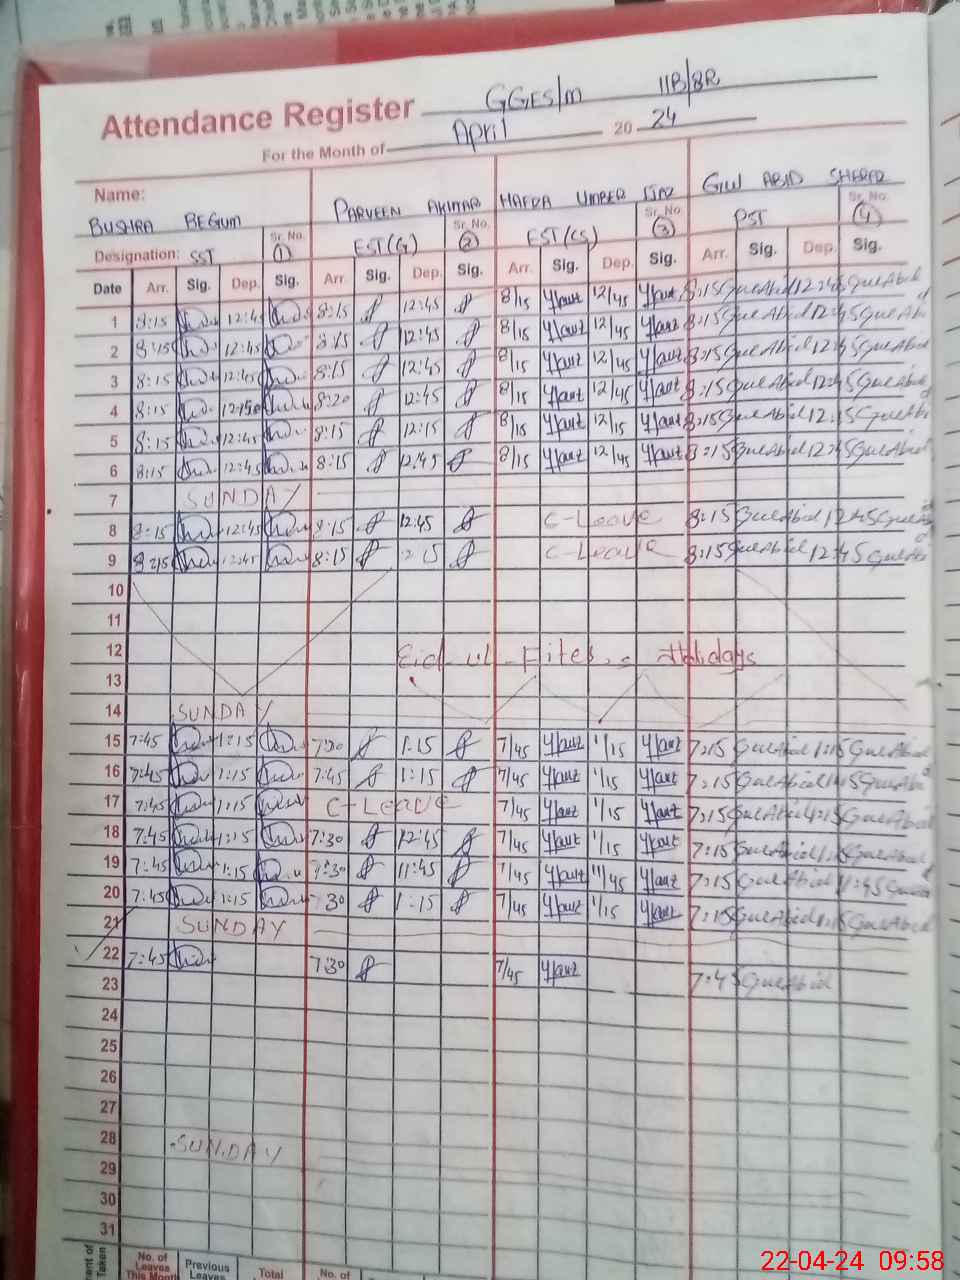 Attendance Register GGES/m 11B/8R
For the Month of April 20 24
Name: BUSHRA BEGUM PARVEEN AKHTAR HAFRA UMBER IJAZ GUL ABID SHARAR
Designation: SST Sr. No. 1 EST(G) Sr. No. 2 EST(CS) Sr. No. 3 PST Sr. No. 4
Date Arr. Sig. Dep. Sig. Arr. Sig. Dep. Sig. Arr. Sig. Dep. Sig. Arr. Sig. Dep. Sig.
1 8:15 12:45 8:15 12:45 8/15 12/45 8:15 Gul Abid 12:45 Gul Abid
2 8:15 12:45 8:15 12:45 8/15 12/45 8:15 Gul Abid 12:45 Gul Abid
3 8:15 12:45 8:15 12:45 8/15 12/45 8:15 Gul Abid 12:45 Gul Abid
4 8:15 8:20 12:45 8/15 12/45 8:15 Gul Abid 12:45 Gul Abid
5 8:15 12:45 8:15 12:15 8/15 12/15 8:15 Gul Abid 12:15 Gul Abid
6 8:15 12:45 8:15 12:45 8/15 12/45 8:15 Gul Abid 12:45 Gul Abid
7 SUNDAY
8 8:15 12:45 8:15 12:45 C-Leave 8:15 Gul Abid 12:45 Gul Abid
9 8:15 12:45 8:15 C-Leave 8:15 Gul Abid 12:45 Gul Abid
10
11
12 Eid-ul-Fiter Holidays
13
14 SUNDAY
15 7:45 1:15 7:30 1:15 7/45 1/15 7:15 Gul Abid 1:15 Gul Abid
16 7:45 1:15 7:45 1:15 7/45 1/15 7:15 Gul Abid 1:15 Gul Abid
17 7:45 1:15 C-Leave 7/45 1/15 7:15 Gul Abid 1:15 Gul Abid
18 7:45 1:15 7:30 12:45 7/45 1/15 7:15 Gul Abid
19 7:45 1:15 7:30 11:45 7/45 11/45 7:15 Gul Abid 11:45 Gul Abid
20 7:45 1:15 7:30 1:15 7/45 1/15 7:15 Gul Abid 1:15 Gul Abid
21 SUNDAY
22 7:45 7:30 7/45 7:45 Gul Abid
23
24
25
26
27
28 SUNDAY
29
30
31
No. of Leaves This Month Previous Leaves Total No. of
22-04-24 09:58